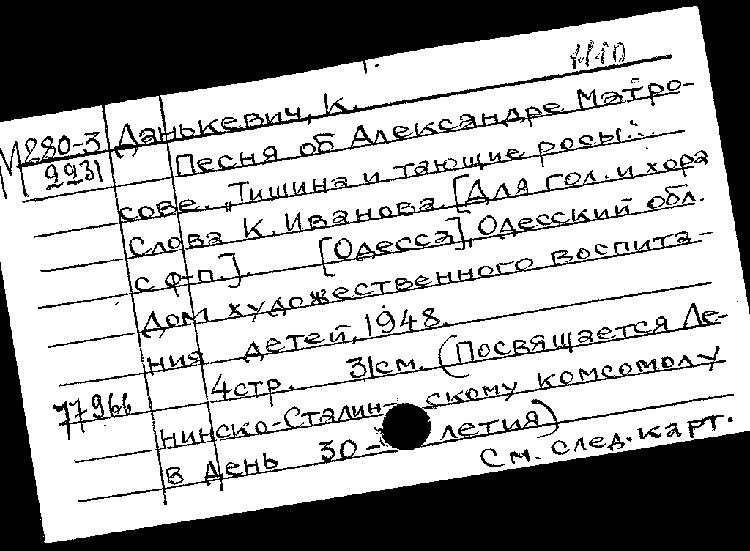 1110
М280-3 Данькевич, К.
2231 Песня об Александре Матро-
сове. „Тишина и тающие росы..."
Слова К. Иванова. [Для гол. и хора
с ф-п.]. [Одесса], Одесский обл.
дом художественного воспита-
ния детей, 1948.
4стр. 31см. (Посвящается Ле-
77966 нинско-Сталинскому комсомолу
в день 30-летия)
См. след. карт.